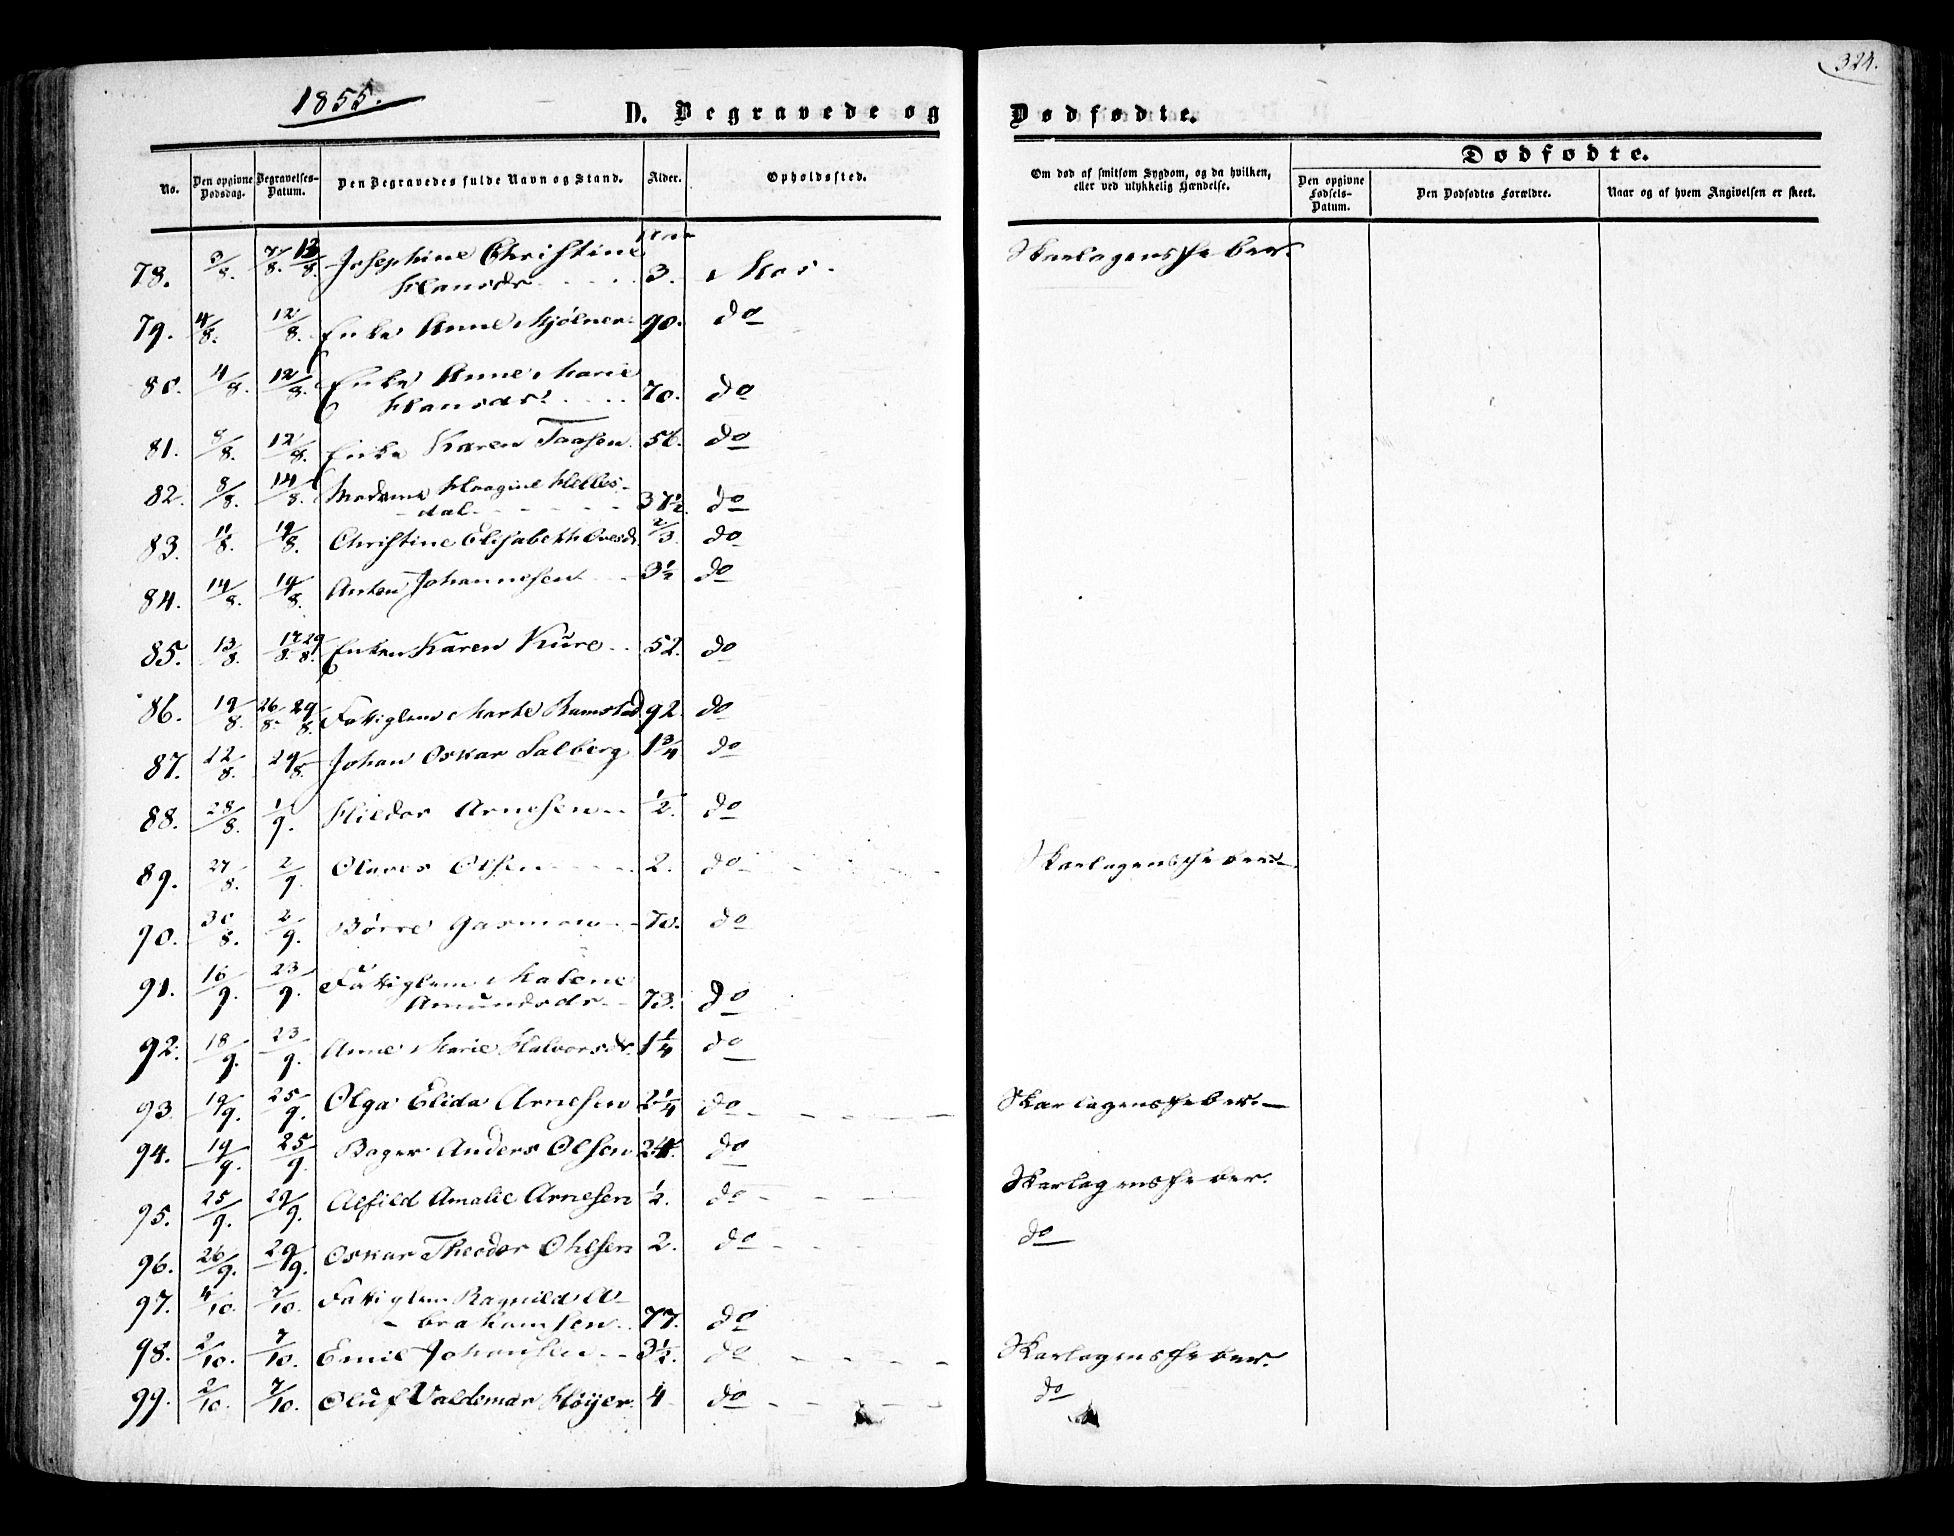 324.
1855.
D. Begravede og Dødfødte.
No.
Den opgivne Dødsdag.
Begravelses-Datum.
Den Begravedes fulde Navn og Stand.
Alder.
Opholdssted.
Om død af smitsom Sygdom, og da hvilken, eller ved ulykkelig Hændelse.
Dødfødte.
Den opgivne Fødsels-Datum.
Den Dødfødtes Forældre.
Naar og af hvem Angivelsen er skeet.
78. 3/8. 7/8. 13/8. Josephine Christine 3. Mos. Skarlagensfeber.
Hansdr
79. 4/8. 12/8. Enke Anne Mjølner 90. do
80. 4/8. 12/8. Enke Anne Marie
Hansdr. 70. do
81. 8/8. 12/8. Enke Karen Taasen 56. do
82. 8/8. 14/8. Madame Haagine Helles-
dal 37½. do
83. 1/8. 19/8. Christine Elisabeth Ovesdr. 2/3. do
84. 14/8. 19/8. Anton Johannesen 3½ do
85. 13/8. 17/8. 29/8. Enken Karen Kure 52. do
86. 19/8. 26/8. 29/8. Fattiglem Marte Ramstad 92. do
87. 22/8. 29/8. Johan Oskar Salberg 1¾ do
88. 28/8. 1/9. Hildor Arnesen ½. do
89. 27/8. 2/9. Olaves Olsen 2. do Skarlagensfeber.
90. 30/8. 2/9. Børre Gasman 70. do
91. 16/9. 23/9. Fattiglem Malene
Amundsdr. 73. do
92. 18/9. 23/9. Anne Marie Halvorsdr. 1¼ do
93. 19/9. 25/9. Olga Elida Arnesen 2¼ do Skarlagensfeber.
94. 19/9. 25/9. Bager Anders Olsen 24. do
95. 25/9. 29/9. Alfild Amalie Arnesen ½. do Skarlagensfeber.
96. 26/9. 29/9. Oskar Theodor Ohlsen 2. do do
97. 4/10. 7/10. Fattiglem Ragnild A-
brahamsen 77. do
98. 2/10. 7/10. Emil Johansen 3½. do Skarlagensfeber.
99. 2/10. 7/10. Oluf Valdemar Høyer. 4 do do